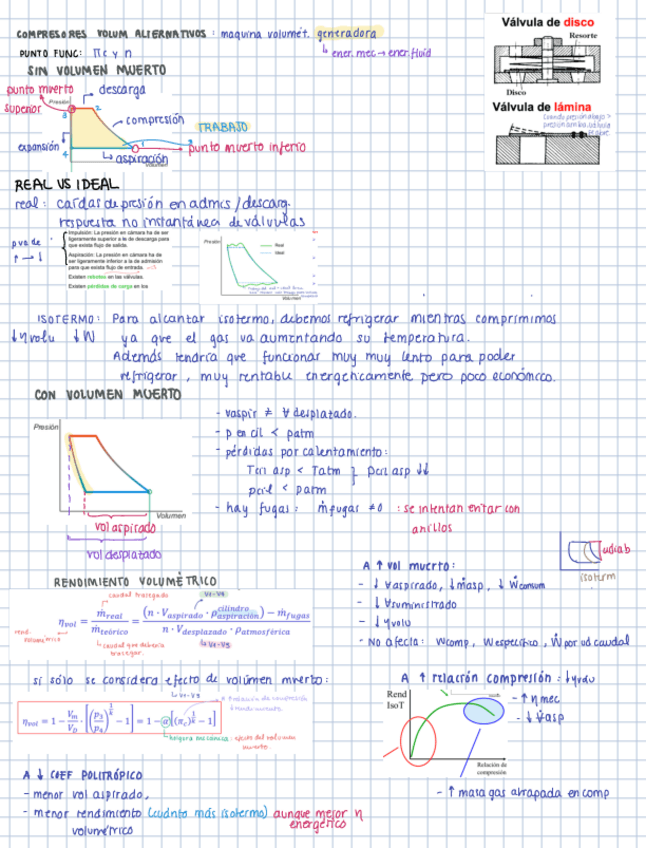 COMPRESORES VOLUM ALTERNATIVOS: maquina volumét. generadora
↳ ener. mec → ener. fluid
PUNTO FUNC: πc y n
SIN VOLUMEN MUERTO
punto muerto superior
Presión
descarga
3
2
compresión
TRABAJO
expansión
4
1
aspiración
Volumen
punto muerto inferio
Válvula de disco
Resorte
Disco
Válvula de lámina
cuando presión abajo >
presión arriba, válvula
REAL VS IDEAL
real: caídas de presión en admis/descarg.
respuesta no instantánea de válvulas
Impulsión: La presión en cámara ha de ser
ligeramente superior a la de descarga para
que exista flujo de salida.
Aspiración: La presión en cámara ha de
ser ligeramente inferior a la de admisión
para que exista flujo de entrada.
Existen rebotes en las válvulas.
Existen pérdidas de carga en los
Presión
Real
Ideal
Volumen
ISOTERMO: Para alcantar isotermo, debemos refrigerar mientras comprimimos
↓ηvolu ↓W ya que el gas va aumentando su temperatura.
Además tendría que funcionar muy muy lento para poder
refrigerar, muy rentable energéticamente pero poco económico.
CON VOLUMEN MUERTO
Presión
Volumen
vol aspirado
vol desplazado
- vaspir ≠ ∀ desplazado.
- p en cil < patm
- pérdidas por calentamiento:
Tcil asp < Tatm } ρcil asp ↓↓
pcil < patm
- hay fugas: ṁfugas ≠ 0 : se intentan evitar con
anillos
RENDIMIENTO VOLUMÉTRICO
caudal trasegado
V1-V4
η_vol = ṁ_real / ṁ_teórico = ((n · V_aspirado · ρ_aspiración^cilindro) − ṁ_fugas) / (n · V_desplazado · ρ_atmosférica)
rend. volumétrico
↳ caudal que debería
trasegar.
↳ V1-V3
A ↑ vol muerto:
- ↓ ∀aspirado, ↓ ṁasp, ↓ Ẇconsum
- ↓ ∀suministrado
- ↓ ηvolu
- No afecta: Wcomp, Wespecífico, Ẇ por ud caudal
adiab
isoterm
si sólo se considera efecto de volúmen muerto:
↳ V1-V3
η_vol = 1 − V_m/V_D · [(p_3/p_4)^(1/k) − 1] = 1 − a[(π_c)^(1/k) − 1]
holgura mecánica: efecto del volumen
muerto.
A ↑ relación compresión: ↓ηvolu
Rend
IsoT
Relación de
compresión
- ↑ η mec
- ↓ v̇asp
- ↑ masa gas atrapada en comp
A ↓ COEF POLITRÓPICO
- menor vol aspirado,
- menor rendimiento (cuánto más isotermo) aunque mejor η
volumétrico energético